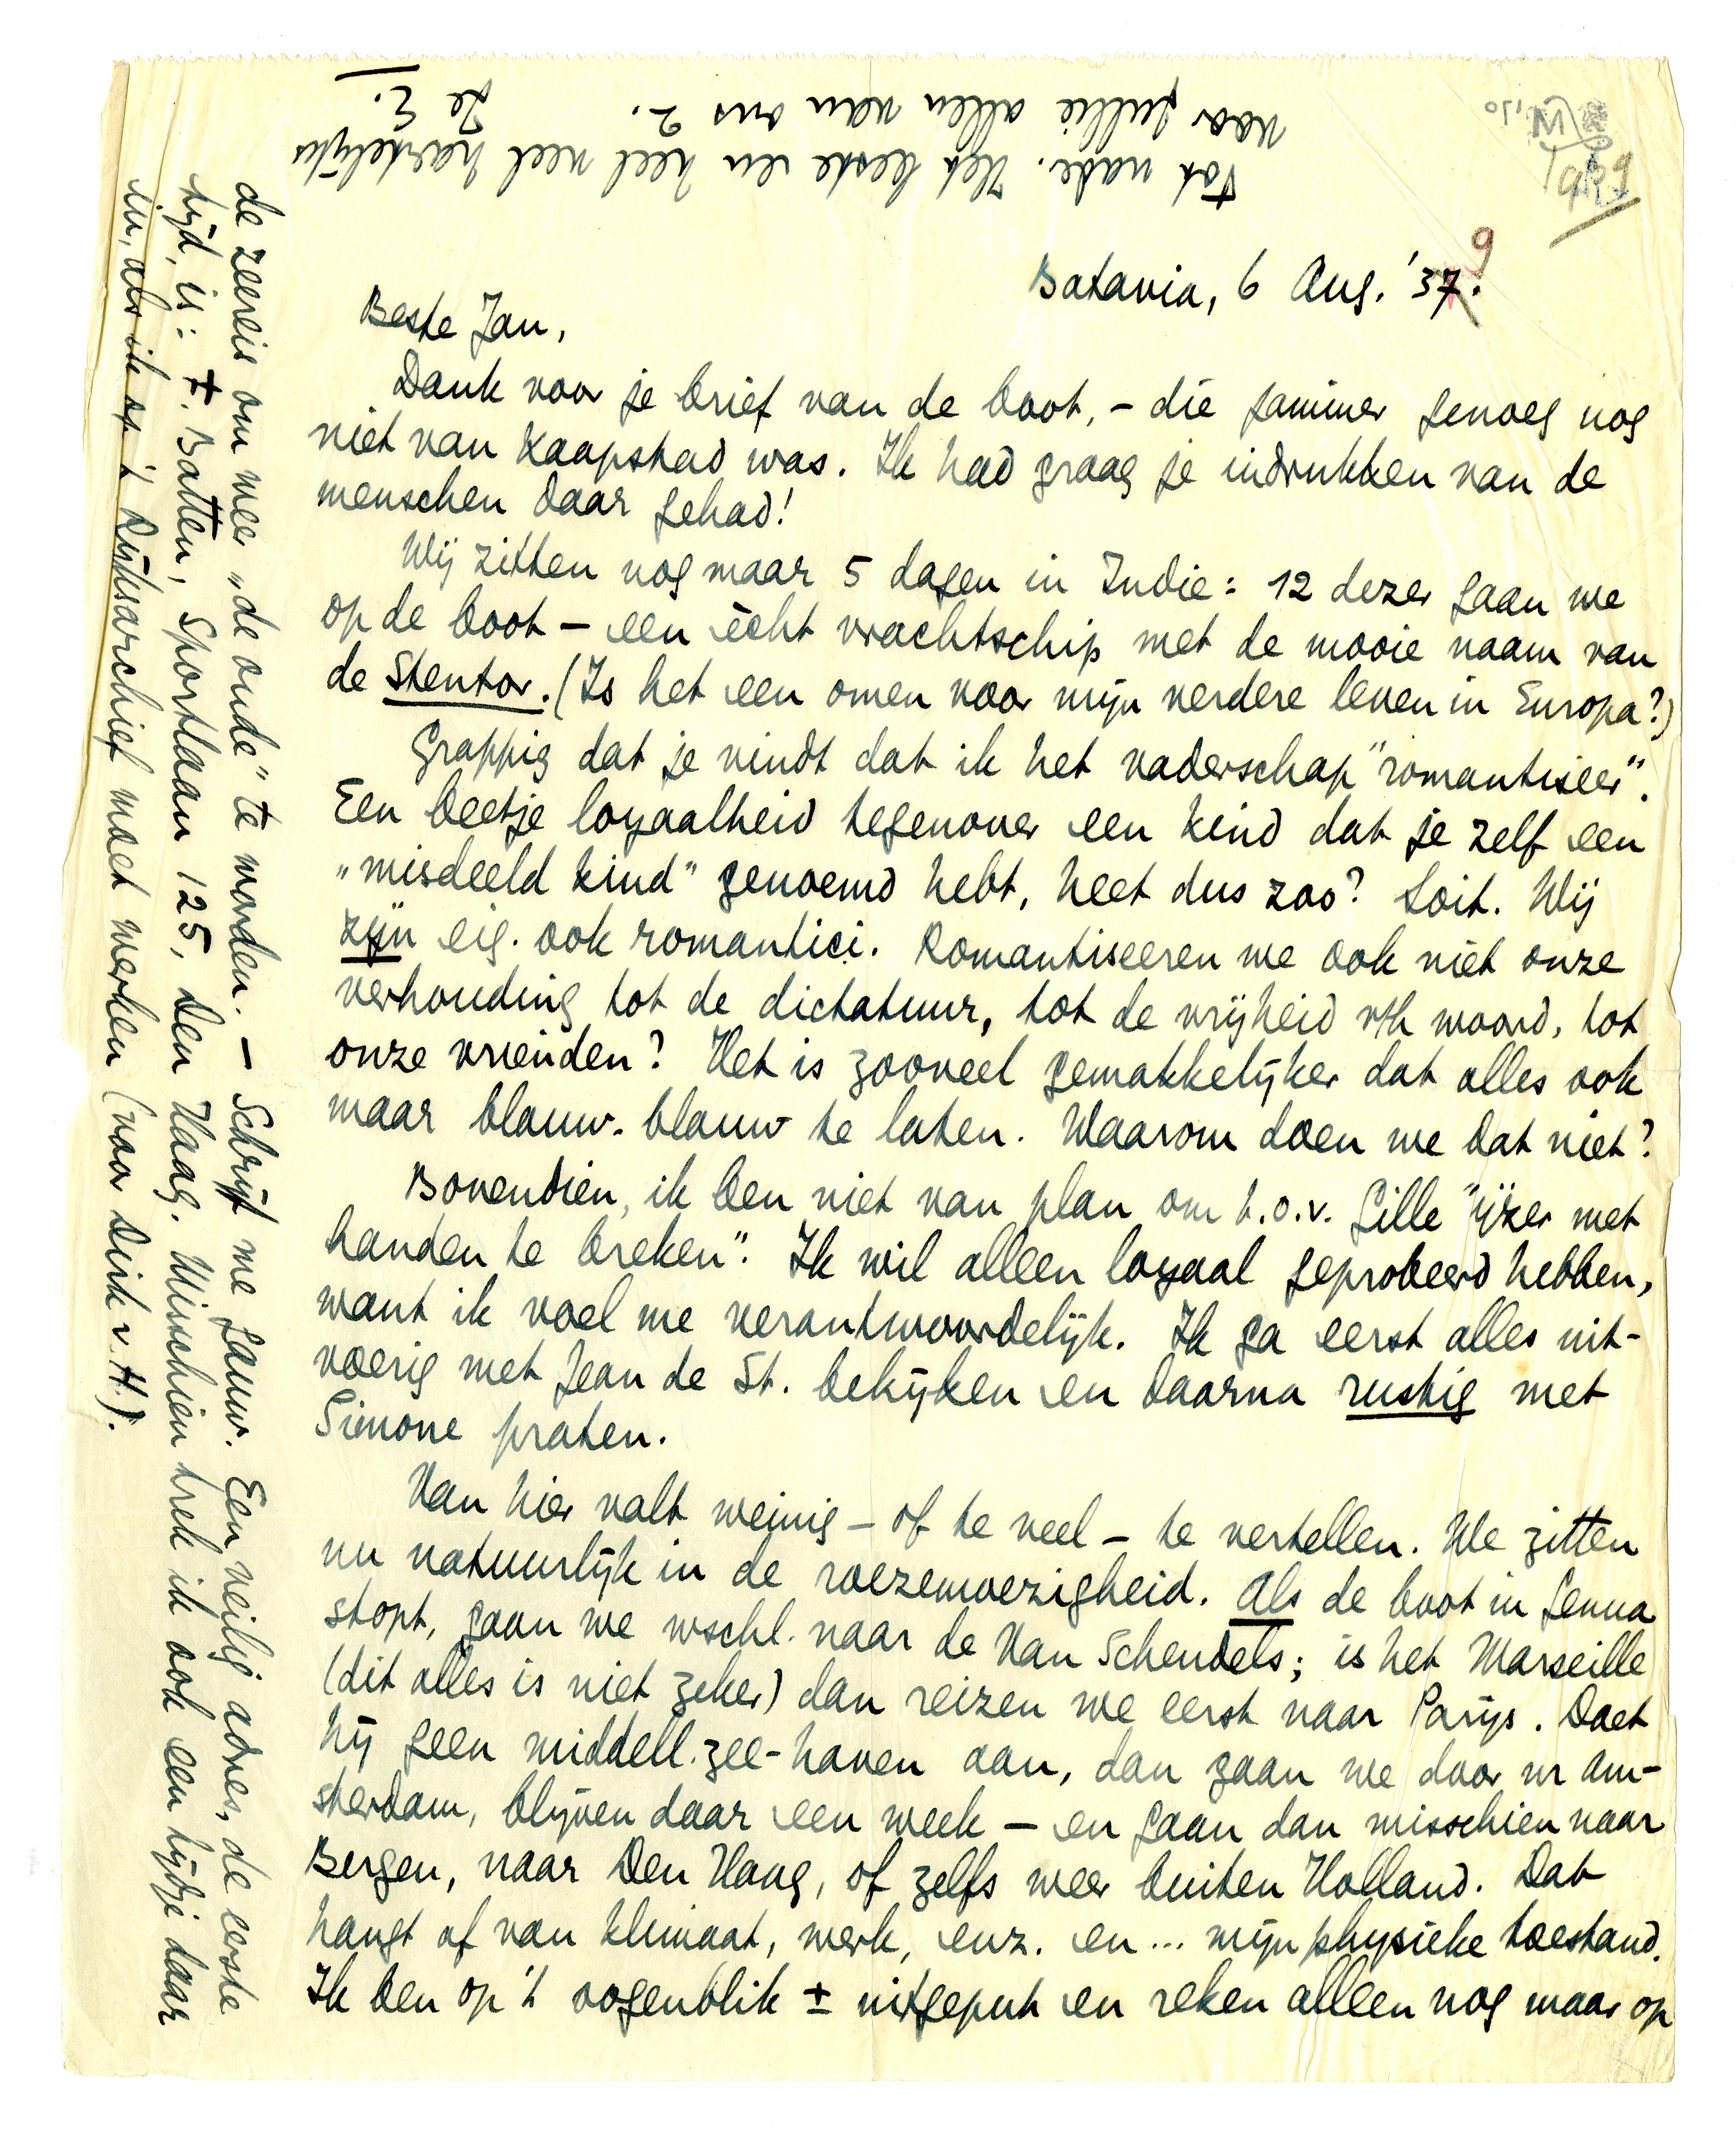 Batavia, 6 Aug. '37.9
Beste Jan,
Dank voor je brief van de boot, – die jammer genoeg nog
niet van Kaapstad was. Ik had graag je indrukken van de
menschen daar gehad!
Wij zitten nog maar 5 dagen in Indie: 12 dezer gaan we
op de boot – een ècht vrachtschip met de mooie naam van
de Stentor. (Is het een omen voor mijn verdere leven in Europa?)
Grappig dat je vindt dat ik het vaderschap "romantiseer".
Een beetje loyaalheid tegenover een kind dat je zelf een
„misdeeld kind" genoemd hebt, heet dus zoo? Soit. Wij
zijn eig. ook romantici. Romantiseeren we ook niet onze
verhouding tot de dictatuur, tot de vrijheid v/h woord, tot
onze vrienden? Het is zooveel gemakkelijker dat alles ook
maar blauw-blauw te laten. Waarom doen we dat niet?
Bovendien, ik ben niet van plan om t.o.v. Gille "ijzer met
handen te breken". Ik wil alleen loyaal geprobeerd hebben,
want ik voel me verantwoordelijk. Ik ga eerst alles uit-
voerig met Jean de St. bekijken en daarna rustig met
Simone praten.
Van hier valt weinig – of te veel – te vertellen. We zitten
nu natuurlijk in de roezemoezigheid. Als de boot in Genua
stopt, gaan we wschl. naar de Van Schendels; is het Marseille
(dit alles is niet zeker) dan reizen we eerst naar Parijs. Doet
hij geen middell. zee-haven aan, dan gaan we door nr Am-
sterdam, blijven daar een week – en gaan dan misschien naar
Bergen, naar Den Haag, of zelfs weer buiten Holland. Dat
hangt af van klimaat, werk, enz. en... mijn physieke toestand.
Ik ben op 't oogenblik ± uitgeput en reken alleen nog maar op
de zeereis om weer „de oude" te worden. – Schrijf me gauw. Een veilig adres, de eerste
tijd, is: F. Batten, Sportlaan 125, Den Haag. Misschien trek ik ook een tijdje daar
in, als ik op 't Rijksarchief moet werken (voor Dirk v. H.).
Tot nader. Het beste en heel veel hartelijks
voor jullie allen van ons 2.
Je E.
1939